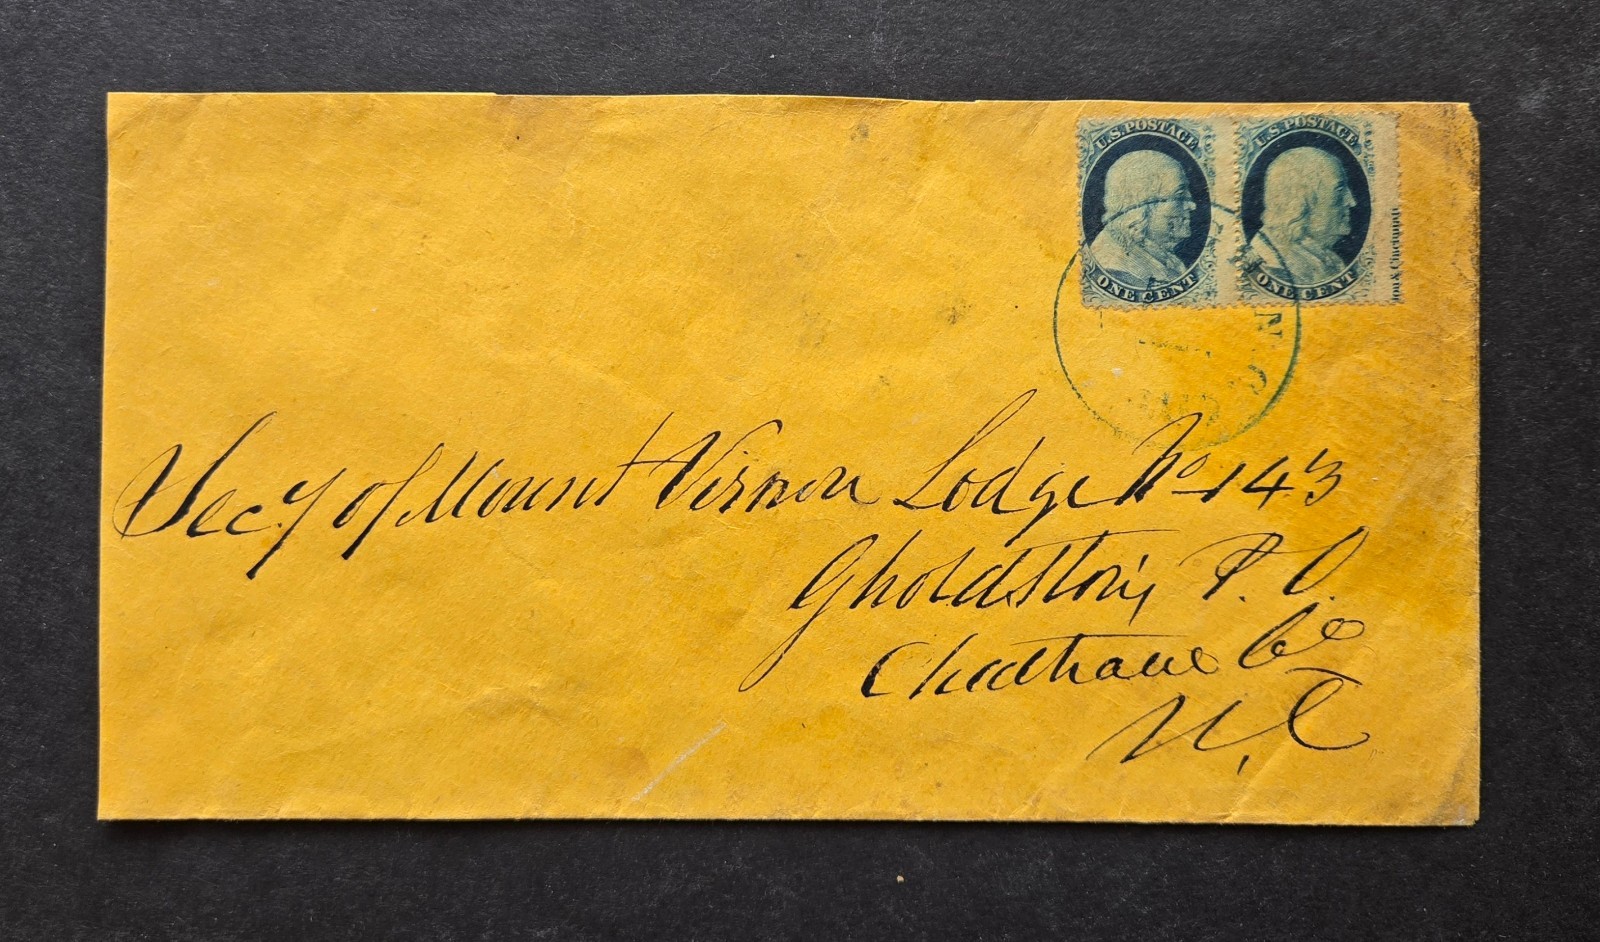 U.S. POSTAGE
ONE CENT
U.S. POSTAGE
ON & Cincinnati
ONE CENT
N. C.
Sec'y of Mount Vernon Lodge No 143
Gholdston, P. O.
Chatham Co
N, C